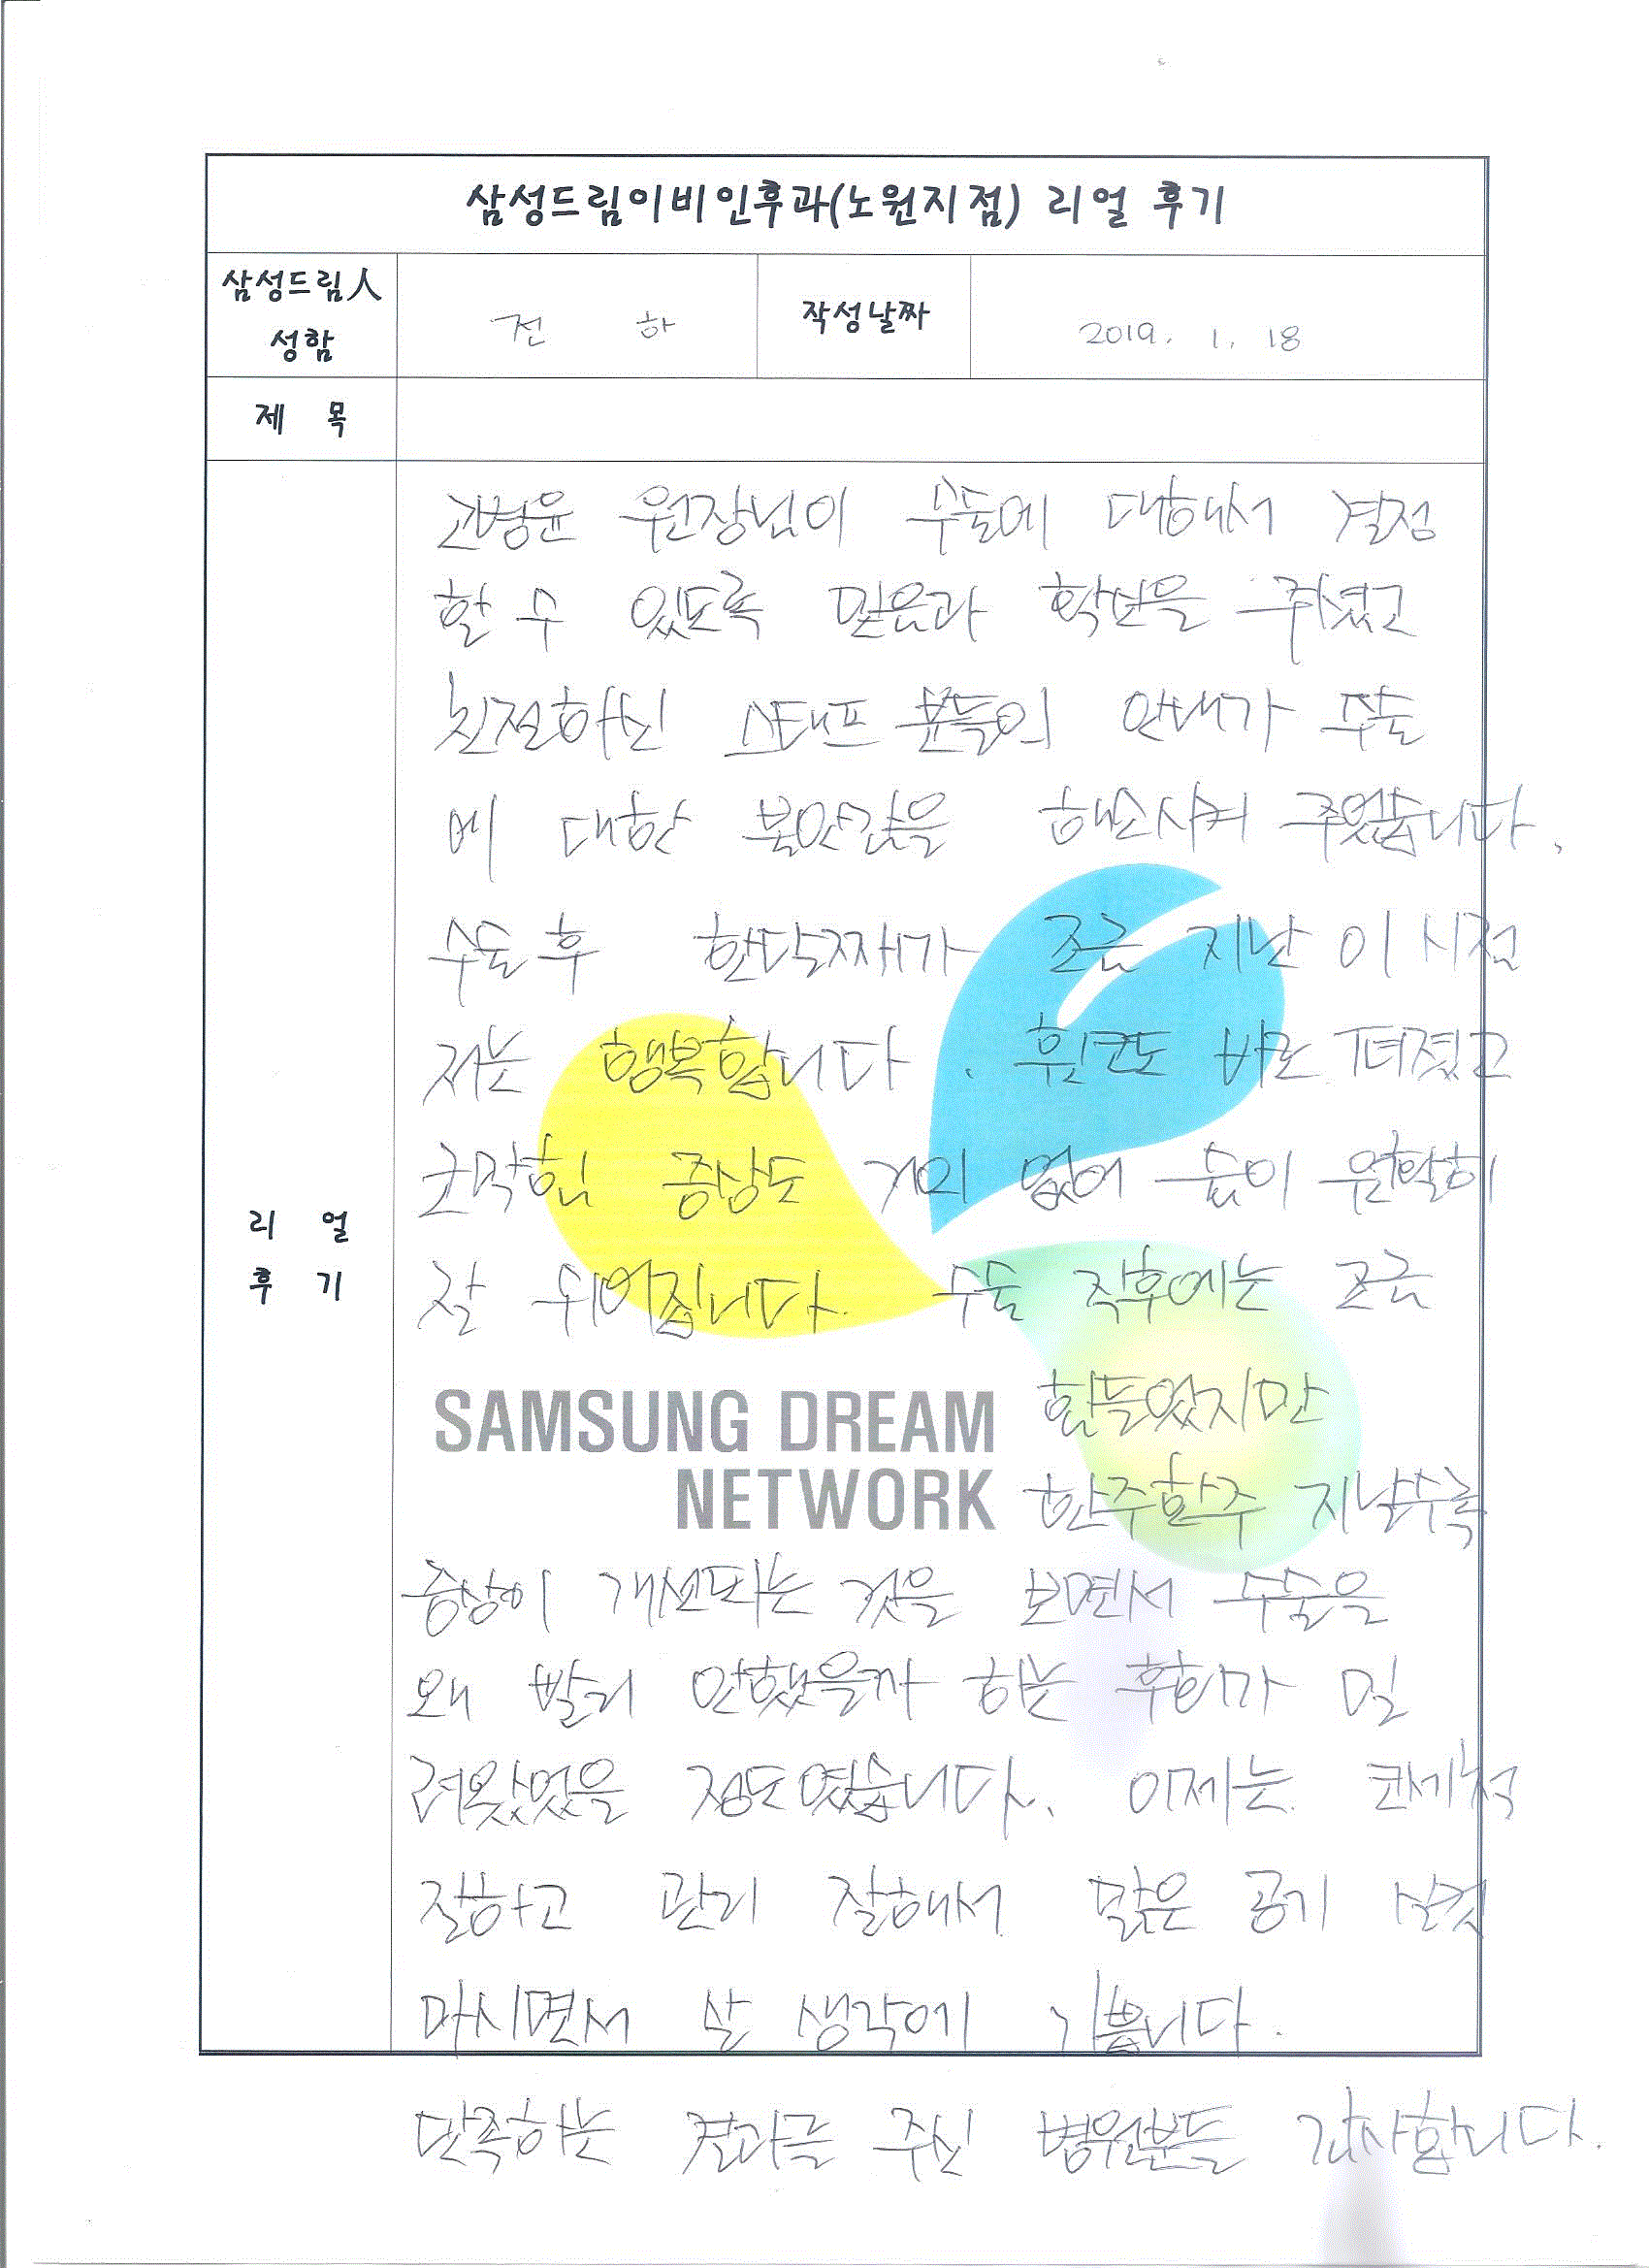 삼성드림이비인후과(노원지점) 리얼 후기
삼성드림人
성함
전 하
작성날짜
2019. 1. 18
제 목
고병윤 원장님이 수술에 대해서 결정
할 수 있도록 믿음과 확신을 주셨고
친절하신 스태프 분들의 안내가 수술
에 대한 불안감을 해소시켜 주었습니다.
수술후 한달째가 조금 지난 이 시점
저는 행복합니다. 휜코도 바로 펴졌고
코막힘 증상도 거의 없어 숨이 원활히
잘 쉬어집니다. 수술 직후에는 조금
힘들었지만
한주한주 지날수록
증상이 개선되는 것을 보면서 수술을
왜 빨리 안했을까 하는 후회가 밀
려왔었을 정도였습니다. 이제는 코세척
잘하고 관리 잘해서 맑은 공기 실컷
마시면서 살 생각에 기쁩니다.
만족하는 결과를 주신 병원분들 감사합니다.
리 얼
후 기
SAMSUNG DREAM
NETWORK